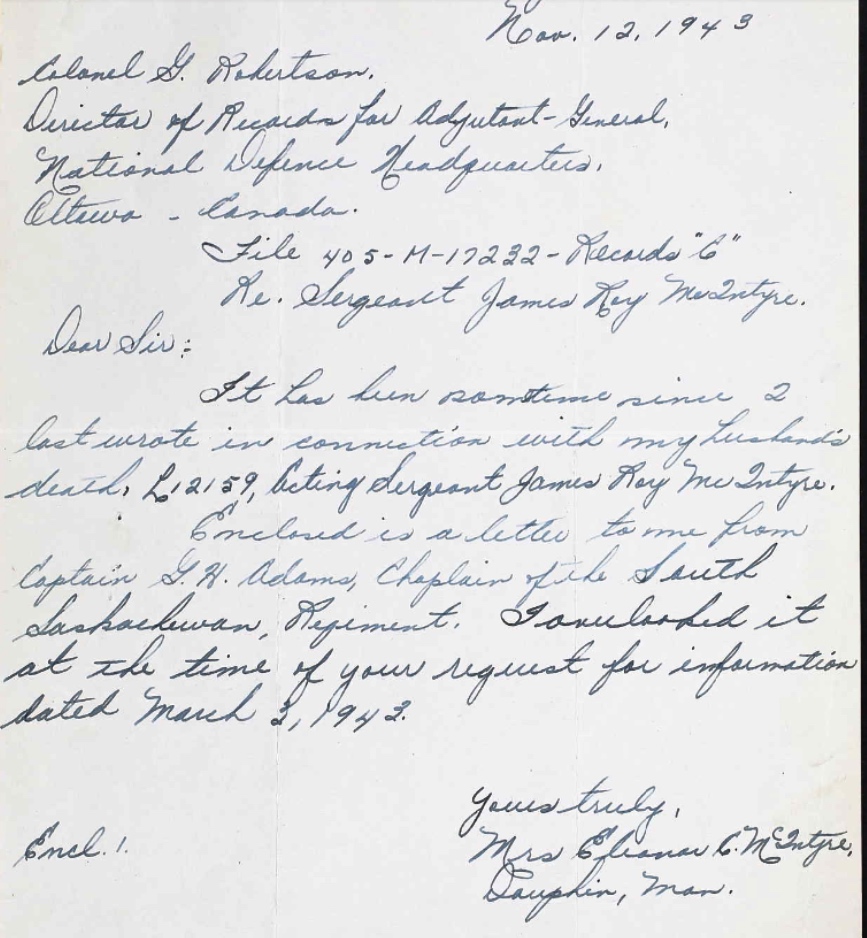 Nov. 12, 1943
Colonel G. Robertson.
Director of Records for Adjutant-General,
National Defence Headquarters,
Ottawa - Canada.
File 405-M-17232-Records "C"
Re. Sergeant James Roy McIntyre.
Dear Sir:
It has been sometime since I
last wrote in connection with my husband's
death, L12159, Acting Sergeant James Roy McIntyre.
Enclosed is a letter to me from
Captain G.H. Adams, Chaplain of the South
Saskachewan, Regiment. I overlooked it
at the time of your request for information
dated March 3, 1943.
Yours truly,
Mrs Eleanor C. McIntyre,
Encl. 1.
Dauphin, Man.